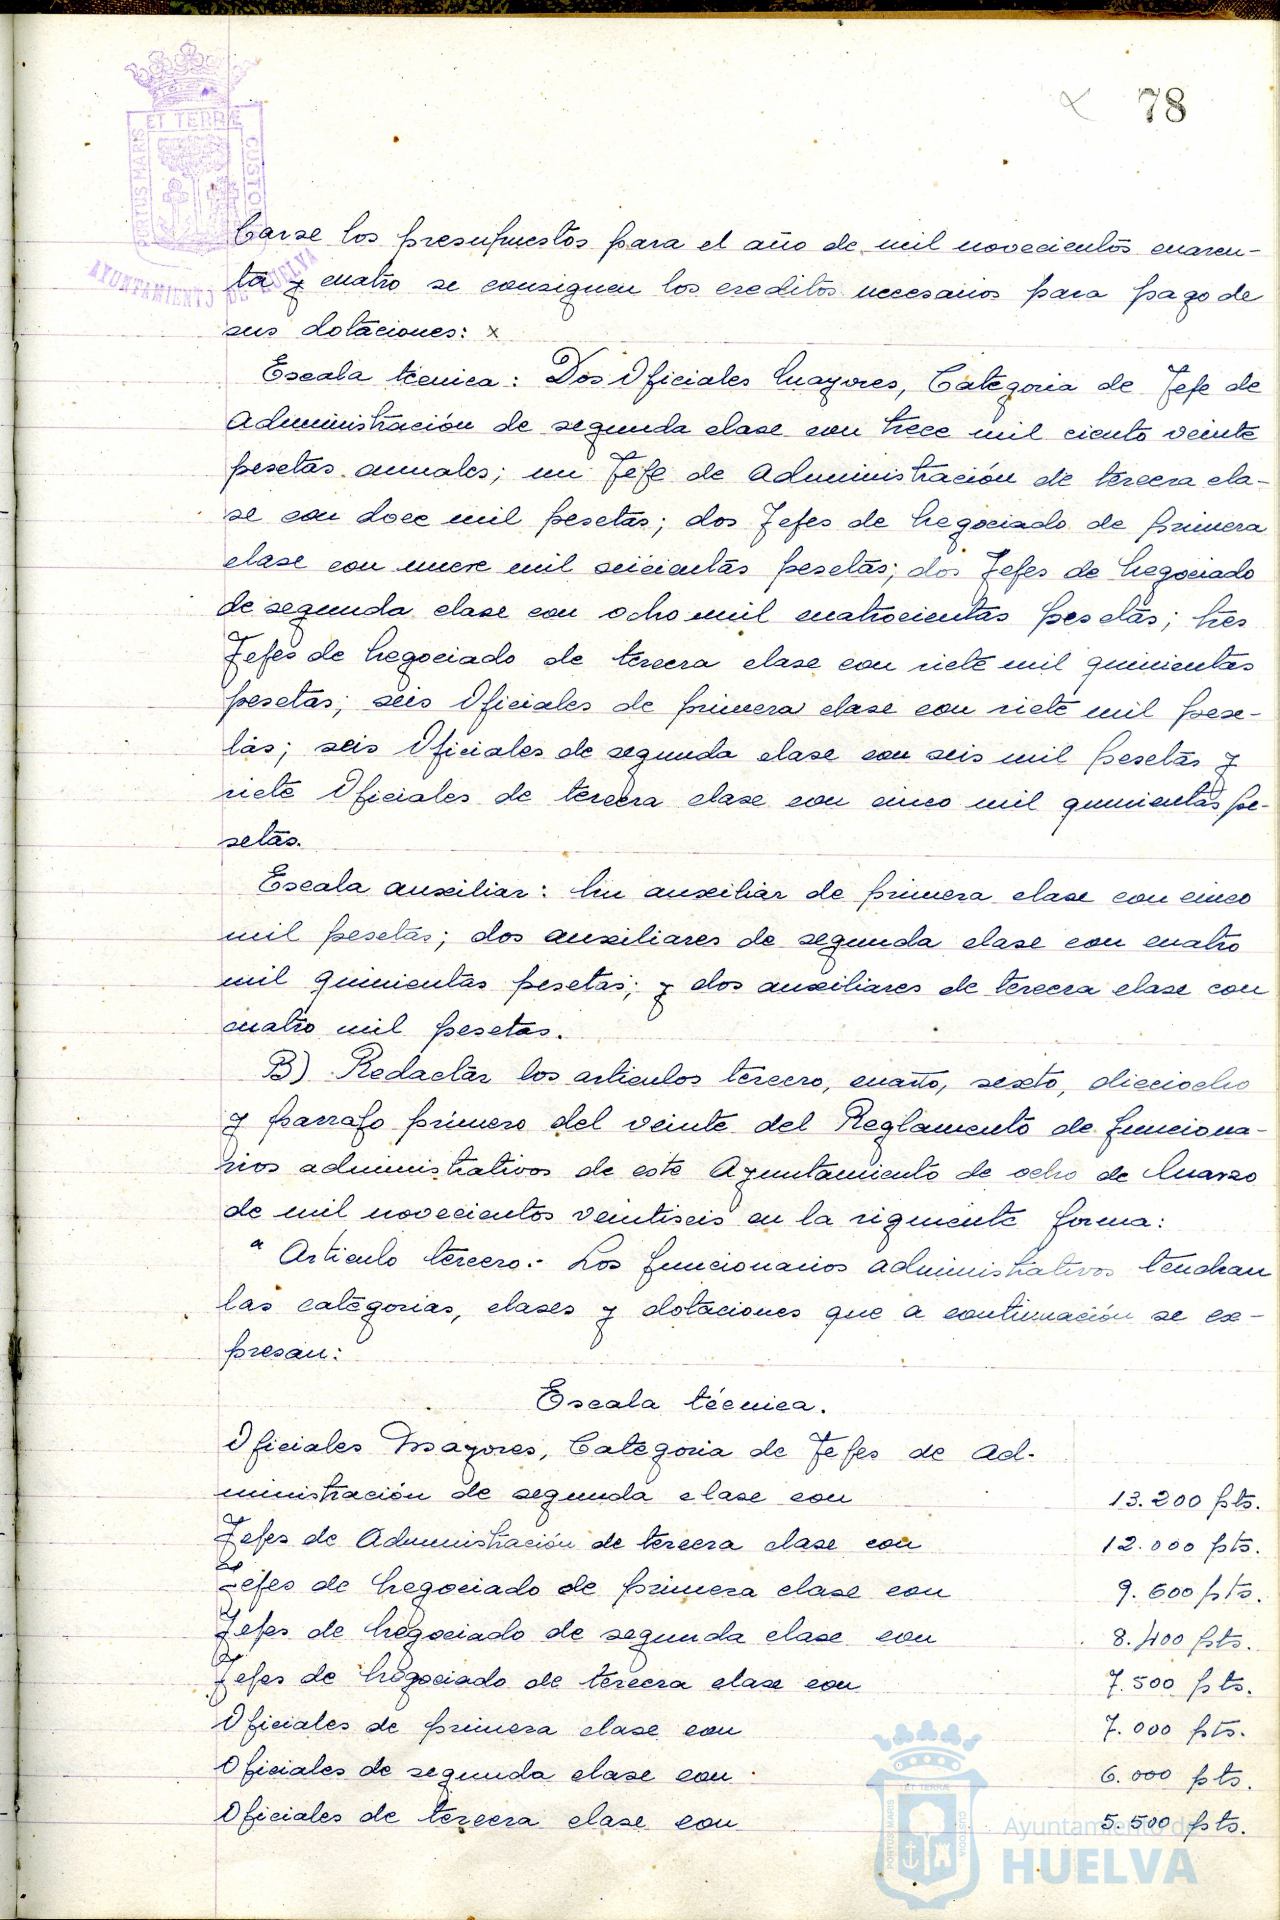 78
ET TERRÆ
PORTUS MARIS
CUSTO
AYUNTAMIENTO DE HUELVA
carse los presupuestos para el año de mil novecientos cuaren-
ta y cuatro se consignen los creditos necesarios para pago de
sus dotaciones: x
Escala técnica: Dos Oficiales Mayores, Categoria de Jefe de
Administración de segunda clase con trece mil ciento veinte
pesetas anuales; un Jefe de Administración de tercera cla-
se con doce mil pesetas; dos Jefes de Negociado de primera
clase con nueve mil seiscientas pesetas; dos Jefes de Negociado
de segunda clase con ocho mil cuatrocientas pesetas; tres
Jefes de Negociado de tercera clase con siete mil quinientas
pesetas; seis Oficiales de primera clase con siete mil pese-
tas; seis Oficiales de segunda clase con seis mil pesetas y
siete Oficiales de tercera clase con cinco mil quinientas pe-
setas.
Escala auxiliar: Un auxiliar de primera clase con cinco
mil pesetas; dos auxiliares de segunda clase con cuatro
mil quinientas pesetas; y dos auxiliares de tercera clase con
cuatro mil pesetas.
B) Redactar los articulos tercero, cuarto, sexto, dieciocho
y parrafo primero del veinte del Reglamento de funciona-
rios administrativos de este Ayuntamiento de ocho de Marzo
de mil novecientos veintiseis en la siguiente forma:
" Articulo tercero.- Los funcionarios administrativos tendran
las categorias, clases y dotaciones que a continuación se ex-
presan:
Escala técnica.
Oficiales Mayores, Categoria de Jefes de Ad-
ministración de segunda clase con 13.200 pts.
Jefes de Administración de tercera clase con 12.000 pts.
Jefes de Negociado de primera clase con 9.600 pts.
Jefes de Negociado de segunda clase con 8.400 pts.
Jefes de Negociado de tercera clase con 7.500 pts.
Oficiales de primera clase con 7.000 pts.
Oficiales de segunda clase con 6.000 pts.
Oficiales de tercera clase con 5.500 pts.
ET TERRÆ
PORTUS MARIS
CUSTODIA
Ayuntamiento de
HUELVA